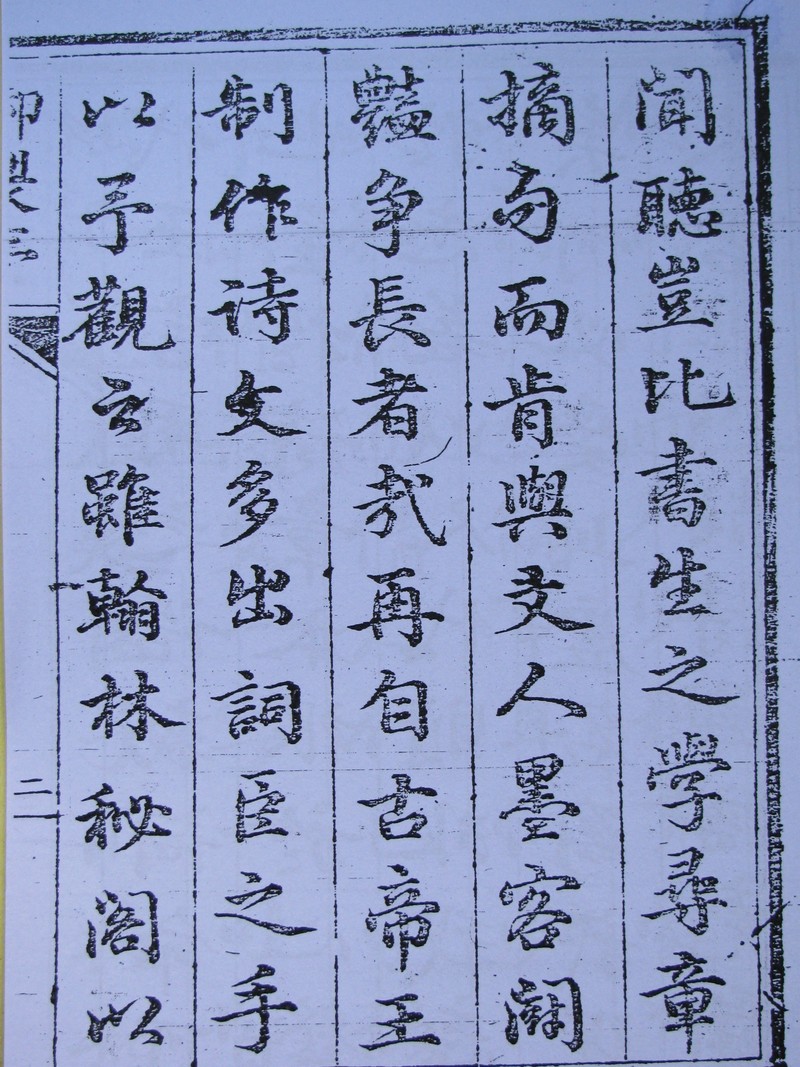 聞聽豈比書生之學尋章
摘句而肯與文人墨客鬭
豔爭長者哉再自古帝王
制作詩文多出詞臣之手
以予觀之雖翰林秘閣以
二